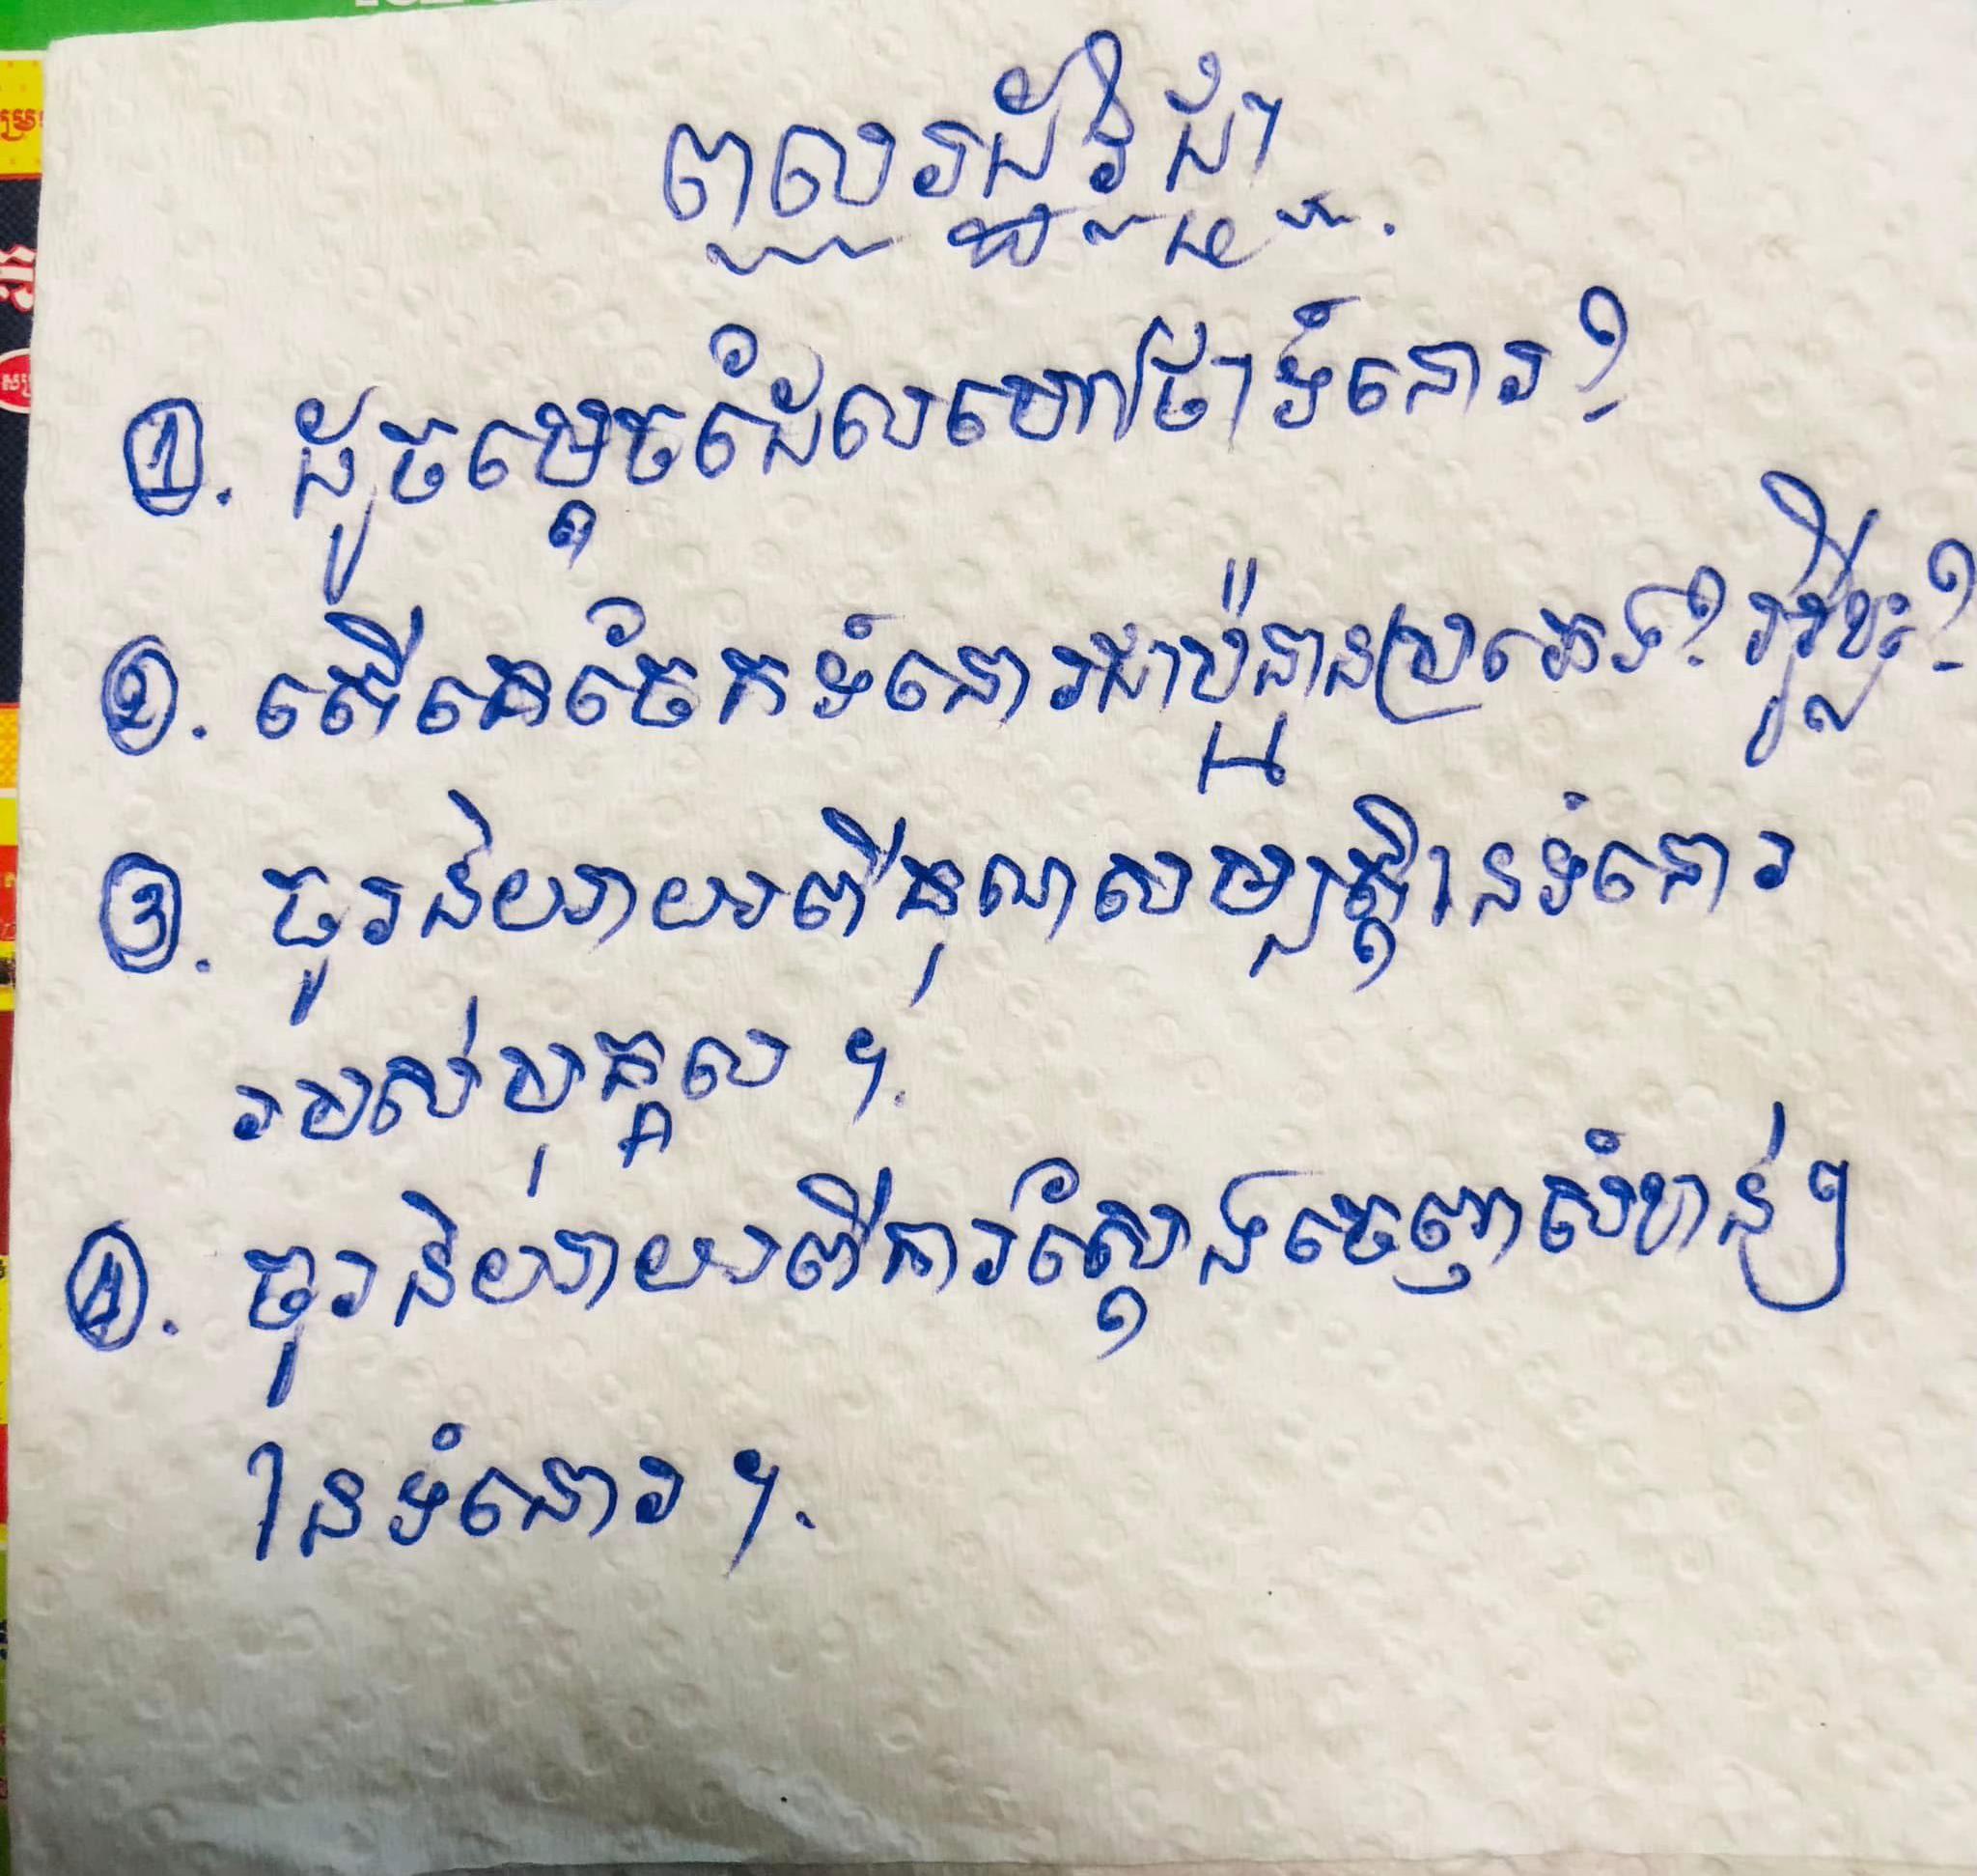 ពលរដ្ឋវិជ្ជា
1. ដូចម្ដេចដែលហៅថាទំនោរ?
2. តើគេចែកទំនោរជាប៉ុន្មានប្រភេទ? អ្វីខ្លះ?
3. ចូរនិយាយពីគុណសម្បត្តិនៃទំនោរ
របស់បុគ្គល ។
4. ចូរនិយាយពីការស្ដែងចេញសំខាន់ៗ
នៃទំនោរ ។